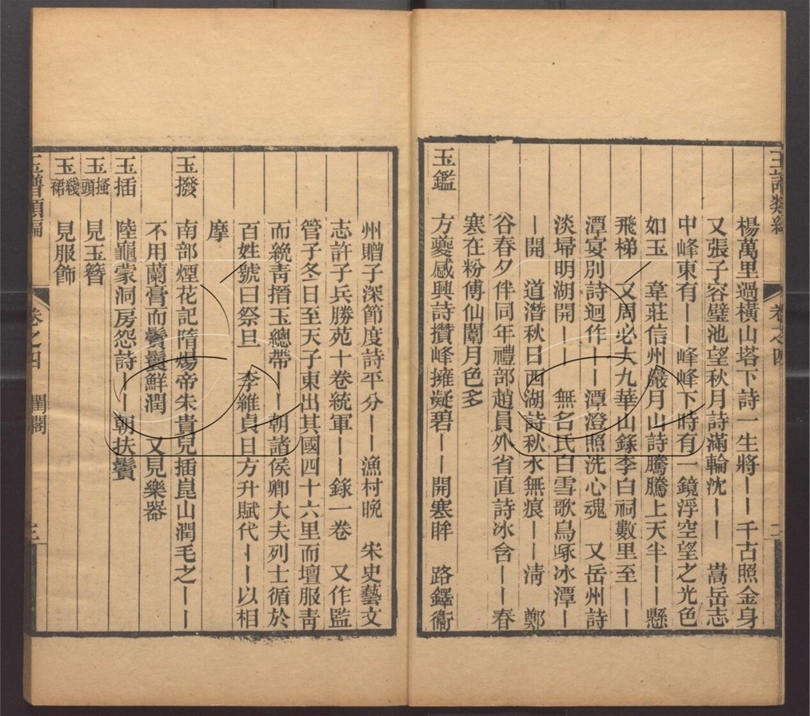 楊萬里過橫山塔下詩一生將丨丨千古照金身
又張子容璧池望秋月詩滿輪沈丨丨　嵩岳志
中峰東有丨丨峰峰下時有一鏡浮空望之光色
如玉　韋莊信州嚴月山詩騰騰上天半丨丨懸
飛梯　又周必大九華山錄李白祠數里至丨丨
潭宴別詩迥作丨丨潭澄照洗心魂　又岳州詩
淡埽明湖開丨丨　無名氏白雪歌鳥啄冰潭丨
丨開　道潛秋日西湖詩秋水無痕丨丨清　鄭
谷春夕伴同年禮部趙員外省直詩冰含丨丨春
寒在粉傅仙闈月色多
玉鑑　方夔感興詩攢峰擁凝碧丨丨開寒眸　路鐸衞
州贈子深節度詩平分丨丨漁村晚　宋史藝文
志許子兵勝苑十卷統軍丨丨錄一卷　又作監
管子冬日至天子東出其國四十六里而壇服靑
而絻靑搢玉總帶丨丨朝諸侯卿大夫列士循於
百姓號曰祭旦　李維貞日方升賦代丨丨以相
摩
玉撥　南部煙花記隋煬帝朱貴兒插崑山潤毛之丨丨
不用蘭膏而鬢鬟鮮潤　又見樂器
玉插　陸龜蒙洞房怨詩丨丨朝扶鬢
玉搔頭　見玉簪
玉綫裙　見服飾
玉譜類編　卷之四　閨閣　三